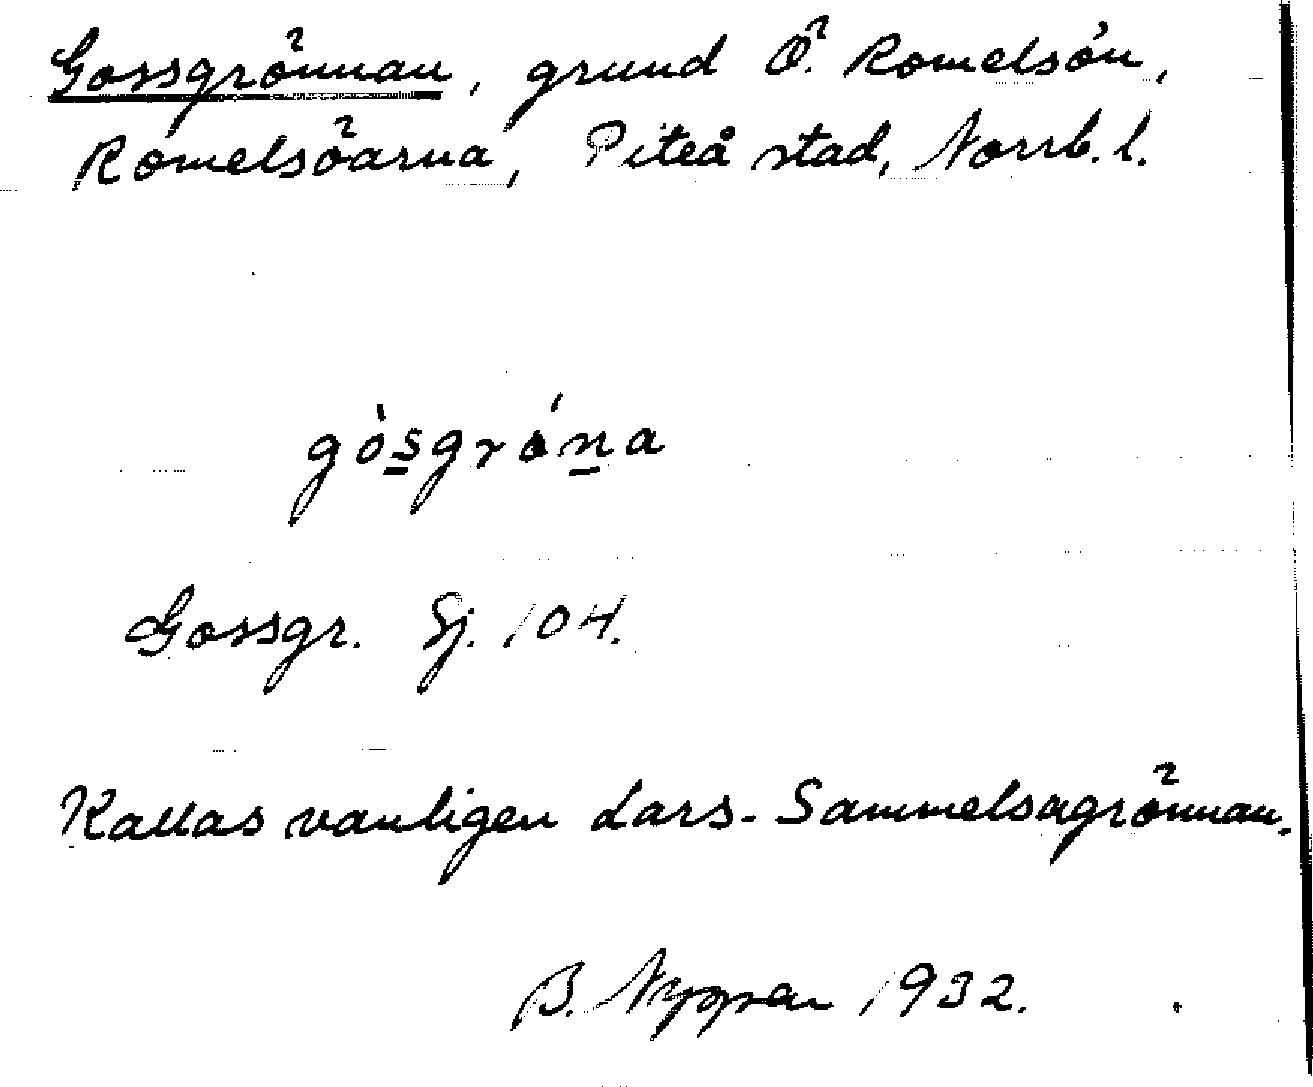 Gossgrönnan, grund Ö. Romelsön,
Romelsöarna, Piteå stad, Norrb. l.
gòs̲grón̲a
Gossgr. Sj. 104.
Kallas vanligen Lars-Sammelsagrönnan.
B. 1932.